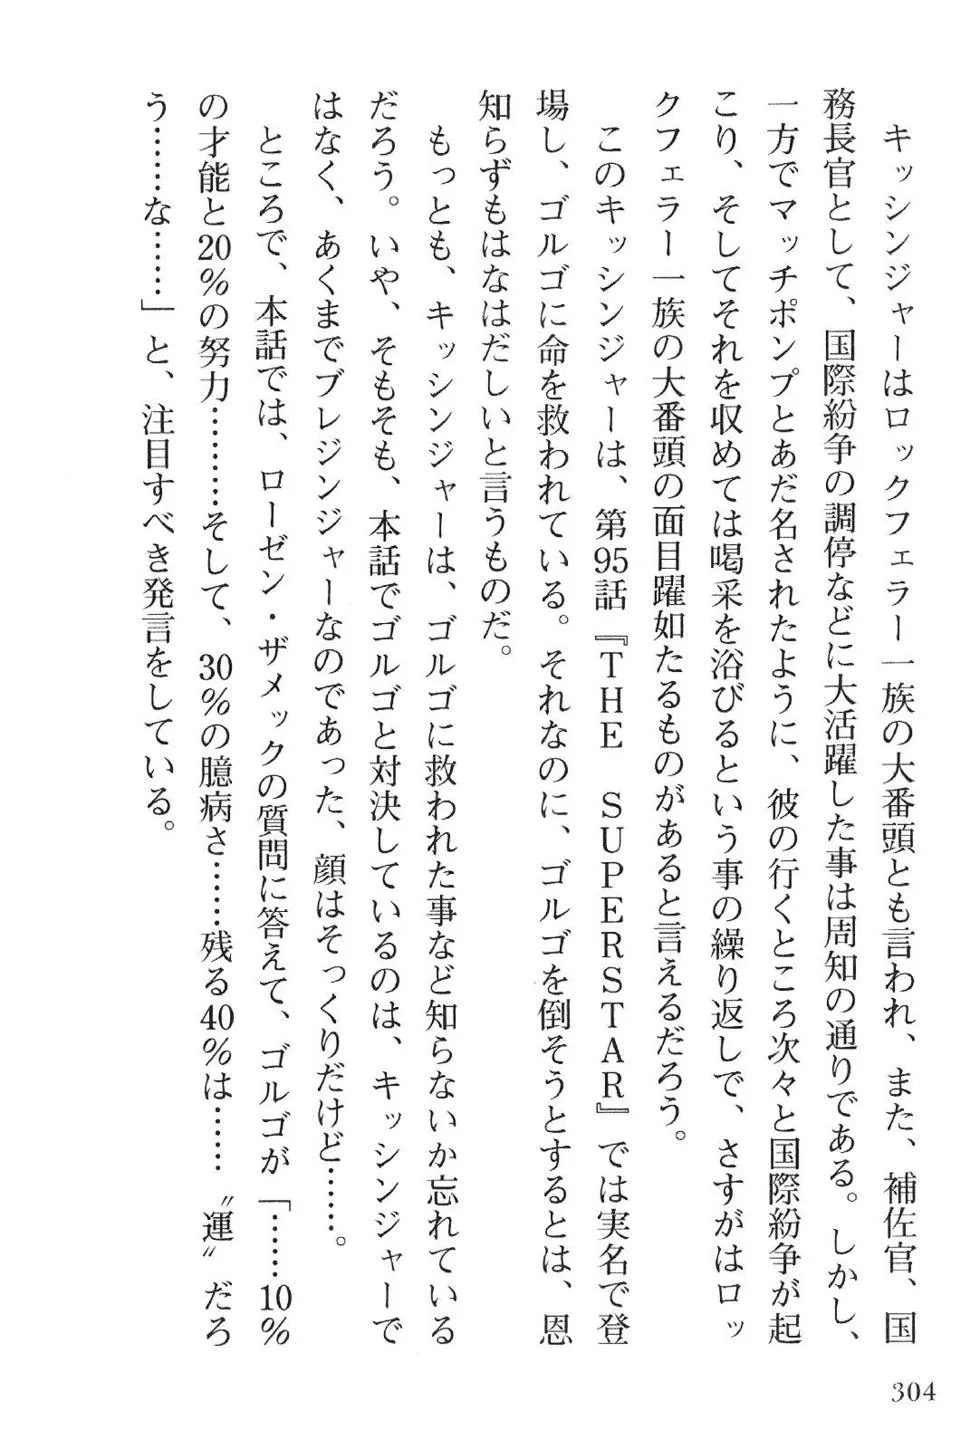 キッシンジャーはロックフェラー一族の大番頭とも言われ、また、補佐官、国
務長官として、国際紛争の調停などに大活躍した事は周知の通りである。しかし、
一方でマッチポンプとあだ名されたように、彼の行くところ次々と国際紛争が起
こり、そしてそれを収めては喝采を浴びるという事の繰り返しで、さすがはロッ
クフェラー一族の大番頭の面目躍如たるものがあると言えるだろう。
このキッシンジャーは、第95話『THE SUPERSTAR』では実名で登
場し、ゴルゴに命を救われている。それなのに、ゴルゴを倒そうとするとは、恩
知らずもはなはだしいと言うものだ。
もっとも、キッシンジャーは、ゴルゴに救われた事など知らないか忘れている
だろう。いや、そもそも、本話でゴルゴと対決しているのは、キッシンジャーで
はなく、あくまでブレジンジャーなのであった、顔はそっくりだけど……。
ところで、本話では、ローゼン・ザメックの質問に答えて、ゴルゴが「……10%
の才能と20%の努力………そして、30%の臆病さ……残る40%は……〝運〟だろ
う……な……」と、注目すべき発言をしている。
304